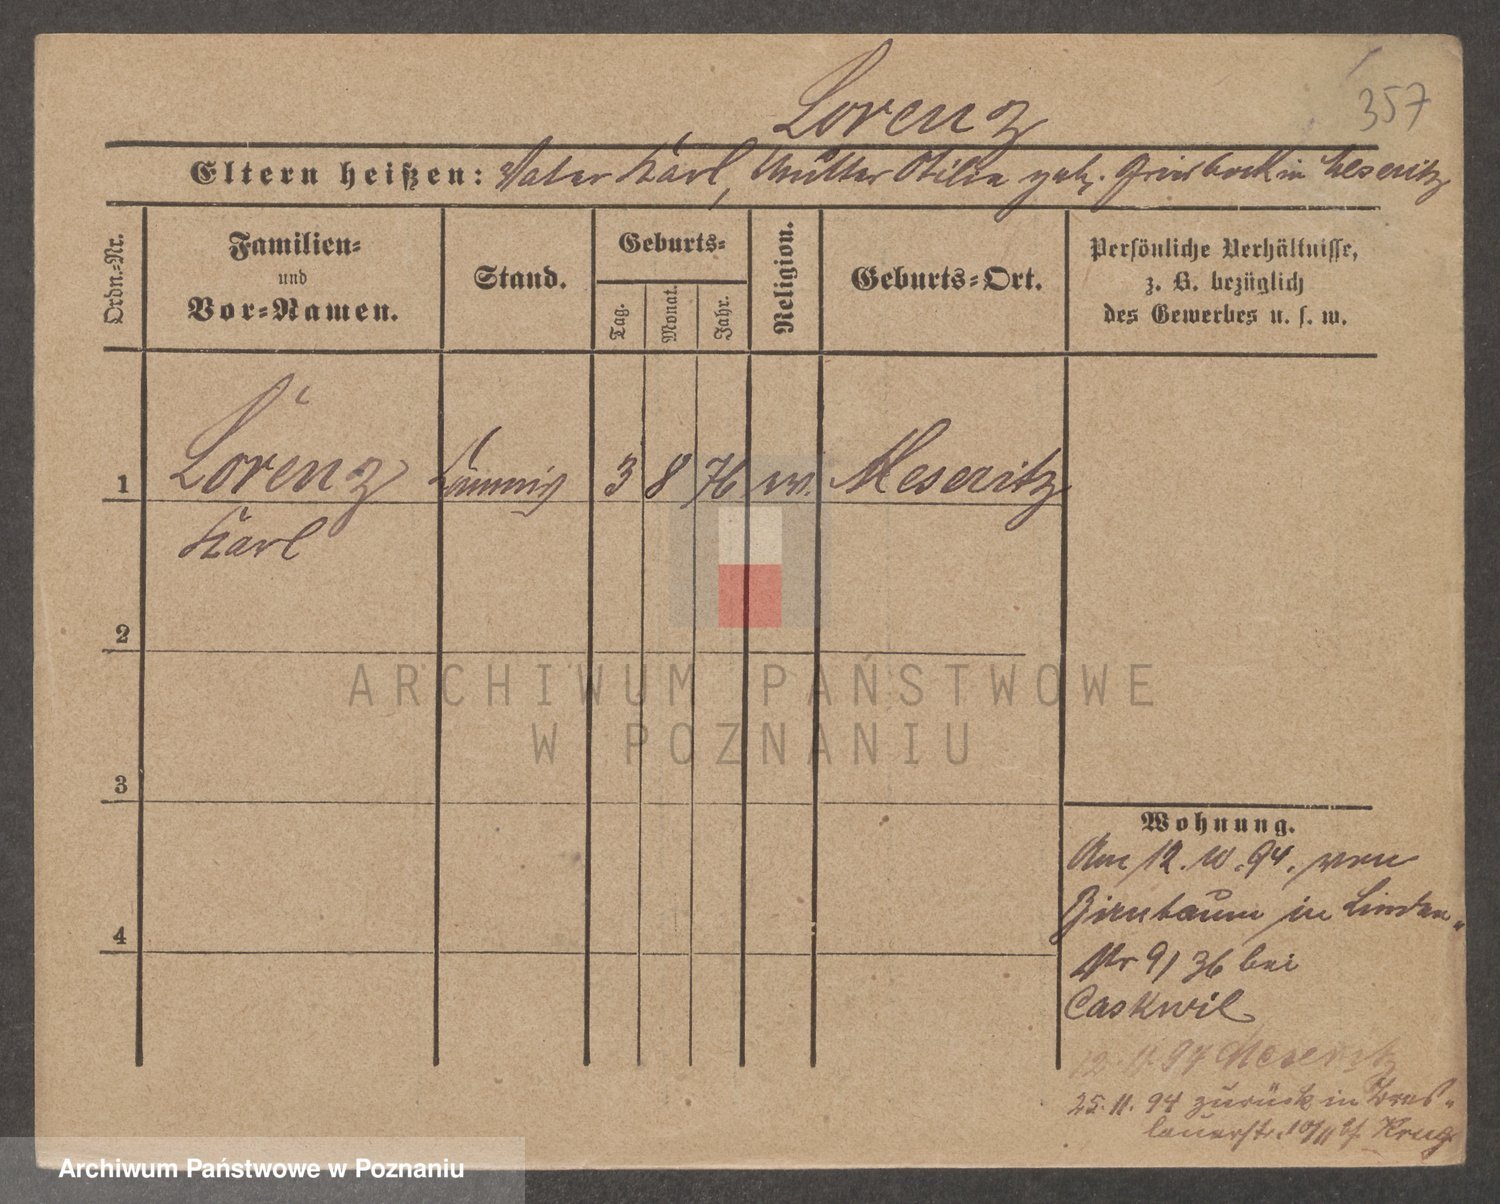 357
Lorenz
Eltern heißen: Vater Karl, Mutter Otilie geb. in Meseritz
Ordn.=Nr.
Familien=
und
Vor=Namen.
Stand.
Geburts=
Tag.
Monat.
Jahr.
Religion.
Geburts=Ort.
Persönliche Verhältnisse,
z. B. bezüglich
des Gewerbes u. s. w.
1 Lorenz 3 8 76 ev. Meseritz
Karl
2
3
4
Wohnung.
Am 12. 10. 94. von
Birnbaum in Linden„
Nr 9/36 bei
Caskwil
12. 11. 94 Meseritz
25. 11. 94 zurück in Bres„
lauerstr. 10/11 b/. Krug
ARCHIWUM PAŃSTWOWE
W POZNANIU
Archiwum Państwowe w Poznaniu